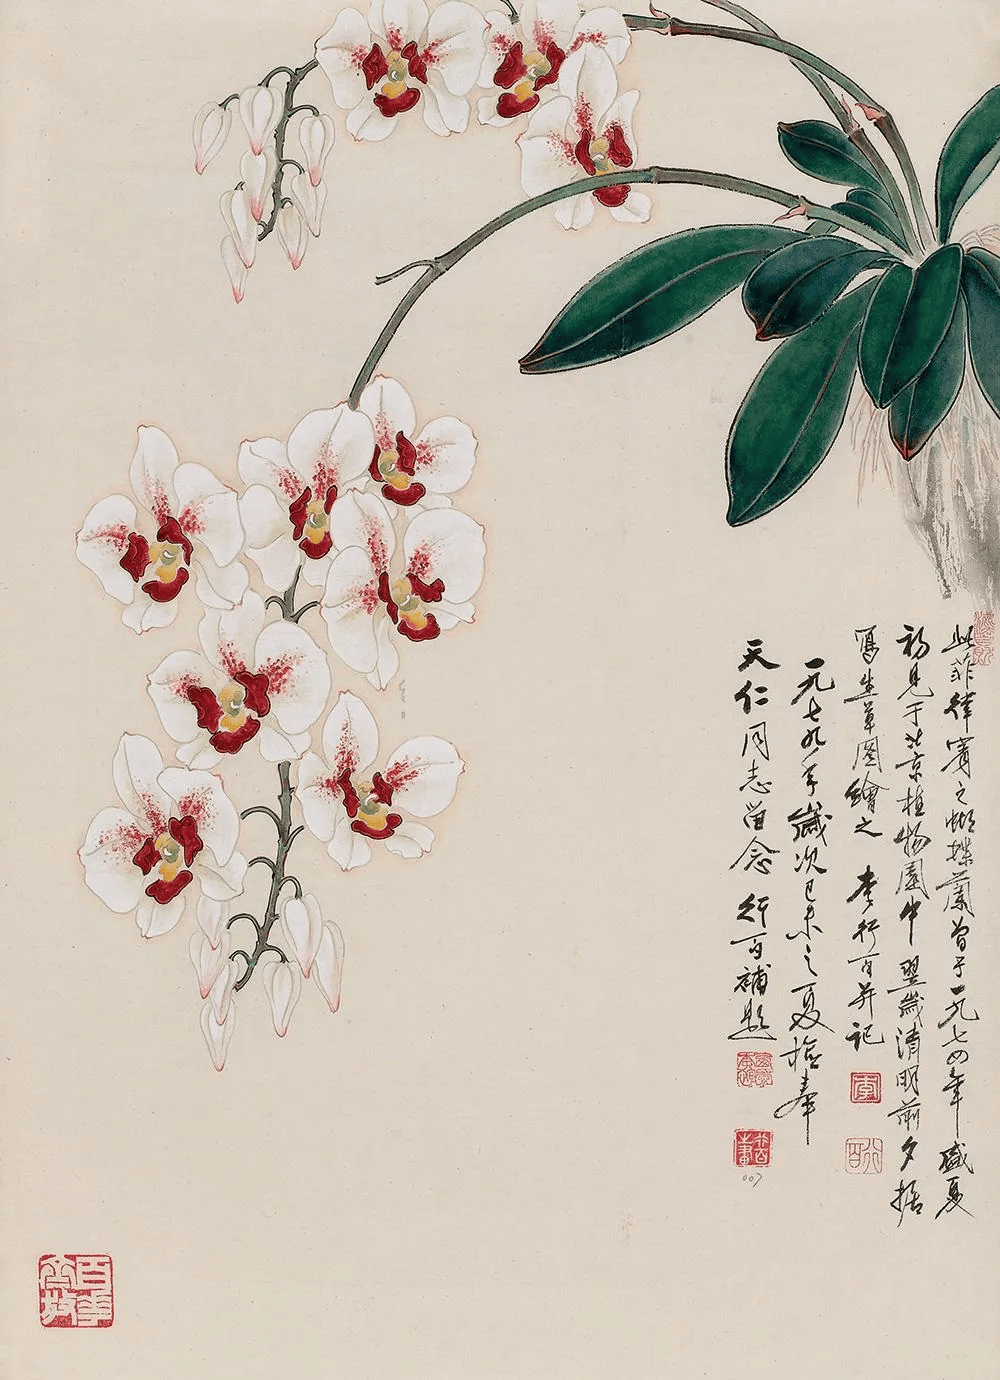 此菲律賓之蝴蝶蘭曾于一九七四年盛夏
初見于北京植物園中翌歲清明前夕據
寫生草圖繪之 李行百并記
一九七九年歲次己未之夏檢奉
天仁同志留念 行百補題
李
行百
百花齊放